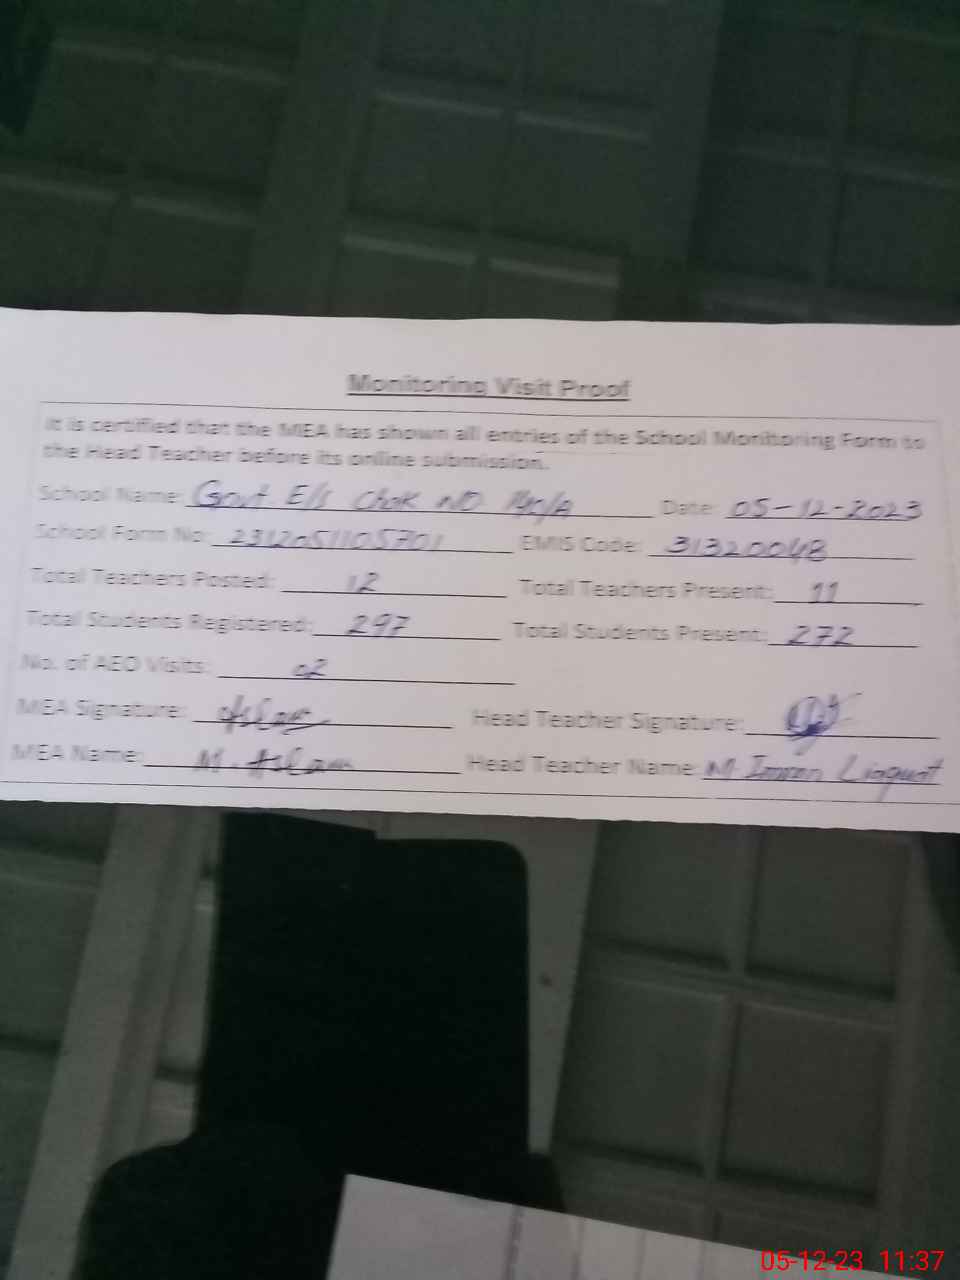 Monitoring Visit Proof
It is certified that the MEA has shown all entries of the School Monitoring Form to
the Head Teacher before its online submission.
School Name: Govt E/s Chak NO Date: 05-12-2023
School Form No: 2312051105701 EMIS Code: 31320048
Total Teachers Posted: 12 Total Teachers Present: 11
Total Students Registered: 297 Total Students Present: 272
No. of AEO Visits: 02
MEA Signature: Aslam Head Teacher Signature:
MEA Name: M. Aslam Head Teacher Name: M Imran Liaquat
05-12-23 11:37